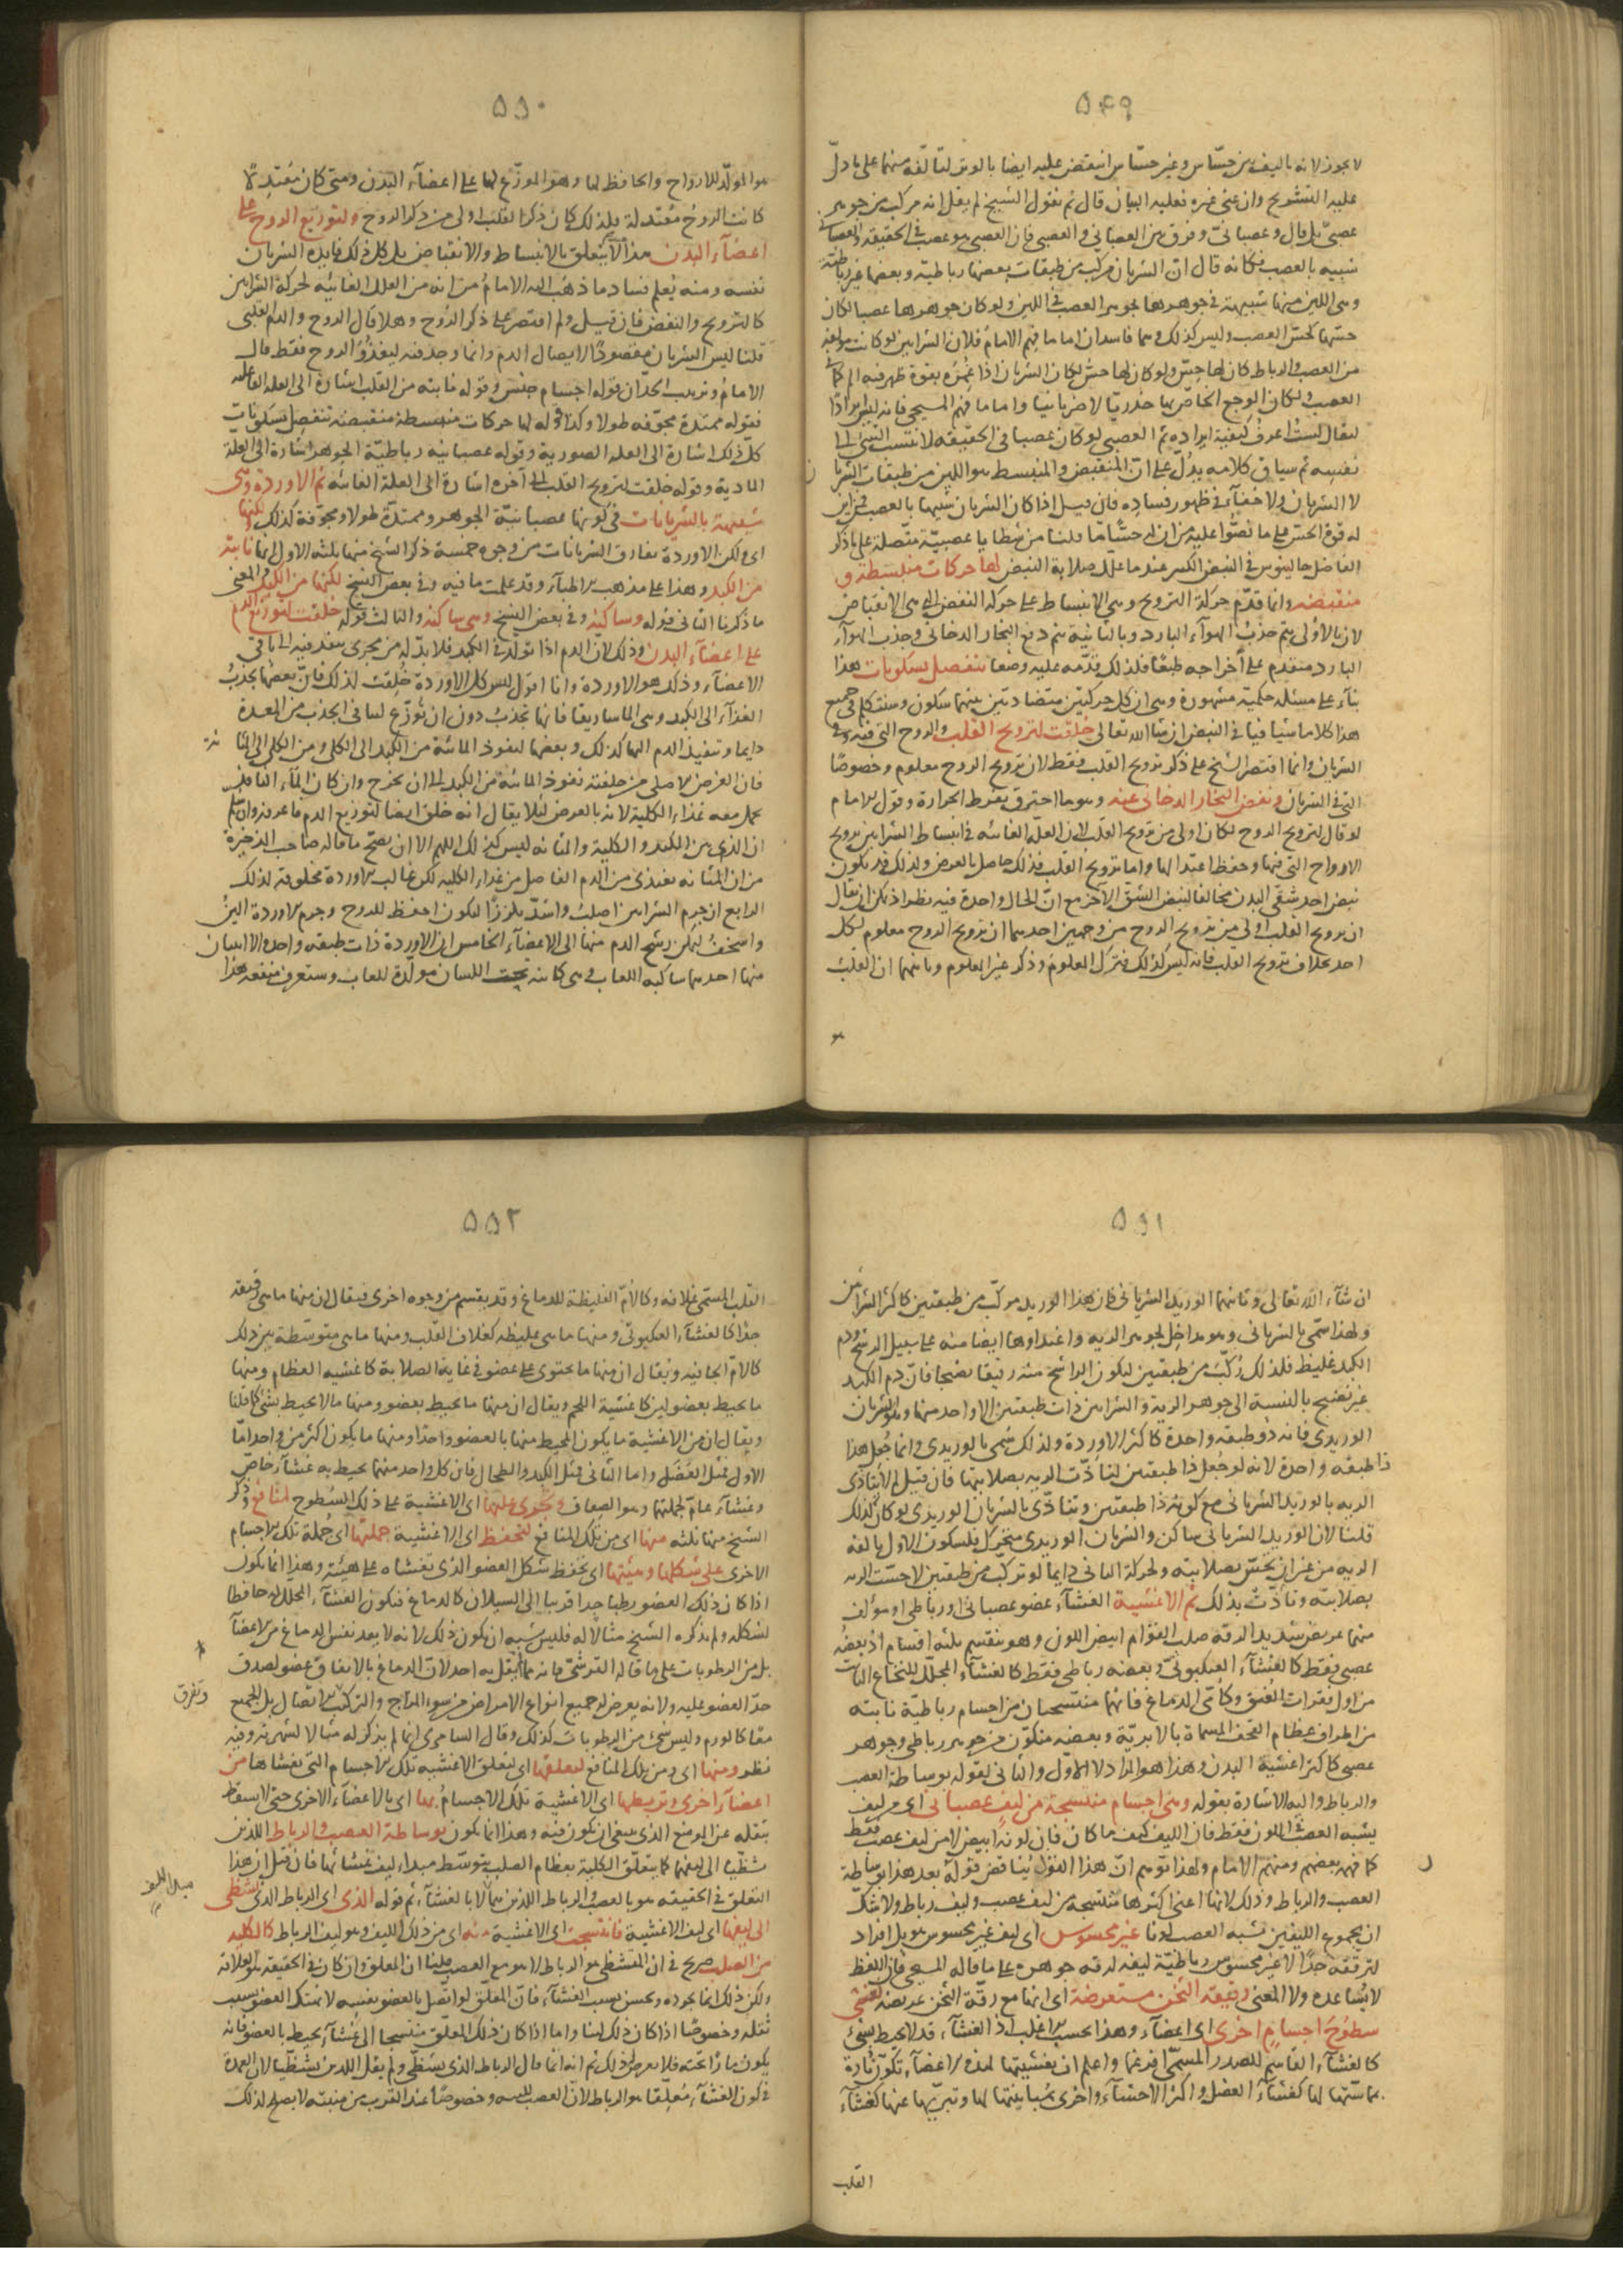 ۵۴۹
لا يجوز لانه باليف من حسّاس وغير حسّاس انتقض عليه ايضا بالوتر لتألفه منهما على ما دلّ
عليه التشريح وان عنى غيره فعليه البيان قال ثم نقول الشيخ لم يقل انه مركب من جوهر
عصبىّ بل قال وعصبانىّ وفرق بين العصبانى والعصبى فان العصبى هو عصب فى الحقيقة والعصبانى
شبيه بالعصب فكانه قال ان الشريان مركب من طبقات بعضها رباطية وبعضها غير رباطية
وهى اللين منهما شبيهة فى جوهرها بجوهر العصب فى اللين ولو كان جوهرها عصبا لكان
حسّها كحسّ العصب وليس كذلك وهما فاسدان اما ما فهم الامام فلان الشرايين لو كانت مؤلفة
من العصب والرباط كان لها حسّ ولو كان لها حسّ لكان الشريان اذا غمزه بقوة ظهر فيه الم كما فى
العصب ولكان الوجع الخاص بها خدريا لا ضربانيا واما ما فهم المسيحى فانه
ليقال لست اعرف كيفية ايراده ثم العصبى لو كان عصبا فى الحقيقة لا نتسب الشئ الى
نفسه ثم سياق كلامه يدلّ على انّ المنقبض والمنبسط هو اللين من طبقات الشريان
لا الشريان ولا خفاء فى ظهور فساده فان قيل اذا كان الشريان شبيها بالعصب فمن اين
له قوة الحس على ما نصّوا عليه من ان له حسّا ما قلنا من شظايا عصبيّة متّصلة على ما ذكر
الفاضل جالينوس فى النبض الكبير عند ما علّل صلابة النبض لها حركات منبسطة و
منقبضة وانما قدّم حركة الترويح وهى الانبساط على حركة النفض التى هى الانقباض
لان بالاولى يتم جذب الهواء البارد وبالثانية يتم دفع البخار الدخانى وجذب الهواء
البارد متقدم على اخراجه طبعًا فلذلك قدّمه عليه وضعا تنفصل بسكونات هذا
بناء على مسئلة حكمية مشهورة وهى ان كل حركتين متضادتين بينهما سكون وسنتكلم فى جميع
هذا كلاما شافيا فى النبض ان شا الله تعالى خلقت لترويح القلب والروح التى فيه وفى
الشريان وانما اقتصر الشيخ على ذكر ترويح القلب فقط لان ترويح الروح معلوم وخصوصًا
التى فى الشريان ونفض البخار الدخانى عنه وهو ما احترق بفرط الحرارة وقول الامام
لو قال لترويح الروح لكان اولى من ترويح القلب لان العلّة الغائية فى انبساط الشرايين ترويح
الارواح التى فيها وحفظ اعتدالها واما ترويح القلب فذلك حاصل بالعرض ولذلك قد يكون
نبض احد شقى البدن مخالفا لنبض الشق الآخر مع انّ الحال واحدة فيه نظر اذ يمكن ان يقال
ان ترويح القلب اولى من ترويح الروح من وجهين احدهما ان ترويح الروح معلوم لكل
احد بخلاف ترويح القلب فانه ليس كذلك فترك المعلوم وذكر غير المعلوم وثانيهما ان القلب
هو
۵۵۰
هو المولّد للارواح والحافظ لها وهو الموزّع لها على اعضآء البدن ومتى كان معتدلاً
كانت الروح معتدلة فلذلك كان ذكر القلب اولى من ذكر الروح ولتوزيع الروح على
اعضآء البدن هذا لا يتعلق بالانبساط والانقباض بل كل ذلك فايدة الشريان
نفسه ومنه يُعلم فساد ما ذهب اليه الامام من انه من العلل الغائية لحركة الشرايين
كالترويح والنفض فان قيل ولم اقتصر على ذكر الروح وهلا قال الروح والدم القلبى
قلنا ليس الشريان مقصودًا لايصال الدم وانما وجد فيه ليغذُوَ الروح فقط قال
الامام وترتيب الحدّ ان قوله اجسام جنس وقوله نابتة من القلب اشارة الى العلة الفاعلة
فقوله ممتدة مجوّفة طولا وكذا قوله لها حركات منبسطة منقبضة تنفصل بسكونات
كل ذلك اشارة الى العلة الصورية وقوله عصبانية رباطيّة الجوهر اشارة الى العلة
المادية وقوله خلقت لترويح القلب الى آخره اشارة الى العلة الغائية ثم الاوردة وهى
شبيهة بالشريانات فى كونها عصبانيّة الجوهر وممتدّة طولا ومجوّفة كذلك ولكنها
اى ولكن الاوردة تفارق الشريانات من وجوه خمسة ذكر الشيخ منها ثلثة الاول انها نابتة
من الكبد وهذا على مذهب الاطباء وقد علمت ما فيه وفى بعض النسخ لكنها من الكبد والمعنى
ما ذكرنا الثانى قوله وساكنة وفى بعض النسخ وهى ساكنة والثالث قوله خلقت لتوزيع الدم
على اعضآء البدن وذلك لان الدم اذا تولد فى الكبد فلا بدّ له من مجرى ينفذ فيه الى باقى
الاعضآء وذلك هو الاوردة وانا اقول ليس كل الاوردة خُلِقت لذلك فانّ بعضها يجذب
الغذآء الى الكبد وهى الماساريقا فانها تجذب دون ان توزّع لبنا فى الجذب من المعدة
دايما وتنفيذ الدم اليها كذلك وبعضها لنفوذ المائية من الكبد الى الكلى ومن الكلى الى المثانة
فان الغرض الاصلى من خلقته نفوذ المائية من الكبد الى ان يخرج وان كان المآء النافذ
يحمل معه غذاء الكلية لانه بالعرض لئلا يقال انه خلق ايضا لتوزيع الدم فاعرفه وان سلم
ان الذى بين الكبد والكلية والمثانة ليس كذلك اللهم الا ان يصحّ ما قاله صاحب الذخيرة
من ان المثانة تغتذى من الدم الفاضل من غذاء الكلية لكن غالب الاوردة مخلوقة لذلك
الرابع ان جرم الشرايين اصلب واشدّ تلززًا ليكون احفظ للروح وجرم الاوردة الين
واسخف ليمكن رشح الدم منها الى الاعضآء الخامس ان الاوردة ذات طبقة واحدة الا اثنان
منها احدهما ساكبة اللعاب فهى كائنة تحت اللسان مولّدة للعاب وستعرف منفعة هذا
۵۵۱
ان شآء الله تعالى وثانيهما الوريد الشريانى فان هذا الوريد مركّب من طبقتين كاكثر الشرايين
ولهذا سمّى بالشريانى وهو مداخل لجوهر الرية واغتذاوها ايضا منه على سبيل الرشح ودم
الكبد غليظ فلذلك رُكّب من طبقتين ليكون الراشح منه رقيقا نضيجا فانّ دم الكبد
غير نضيج بالنسبة الى جوهر الرية والشرايين ذات طبقتين الا واحد منها وهو الشريان
الوريدى فانه ذو طبقة واحدة كاكثر الاوردة ولذلك سُمّى بالوريدى وانما جُعل هذا
ذا طبقة واحدة لانه لو جُعل ذا طبقتين لتاذّت الرية بصلابتها فان قيل لم لا تتاذّى
الرية بالوريد الشريانى مع كونه ذا طبقتين وتتاذّى بالشريان الوريدى لو كان كذلك
قلنا لان الوريد الشريانى ساكن والشريان الوريدى متحرّك فلسكون الاول يالفه
الرية من غير ان يحسّ بصلابته ولحركة الثانى دايما لو تركّب من طبقتين لاحسّت الرية
بصلابته وتاذّت بذلك ثم الاغشية الغشآء عضو عصبانى او رباطى او مؤلف
منهما عريض شديد الدقة صلب القوام ابيض اللون وهو ينقسم ثلثة اقسام اذ بعضه
عصبى فقط كالغشآء العنكبوتى وبعضه رباطى فقط كالغشآء المجلّل للنخاع النابت
من اول فقرات العُنق وكأمّى الدماغ فانهما منتسجان من اجسام رباطية نابتة
من اطراف عظام القحف المسماة بالابريّة وبعضه متكوّن من جوهر رباطى وجوهر
عصبى كاكثر اغشية البدن وهذا هو المراد لا الاوّل والثانى لقوله بوساطة العصب
والرباط واليه الاشارة بقوله وهى اجسام منتسجة من ليف عصبانى اى من ليف
يشبه العصب فى اللون فقط فان الليف كيف ما كان فان لونه ابيض لا من ليف عصب فقط
كما فهمه بعضهم ومنهم الامام ولهذا توهم انّ هذا القول يُناقض قوله بعد هذا بوساطة
العصب والرباط وذلك لانها اعنى اكثرها منتسجة من ليف عصب وليف رباط ولا شكّ
ان مجموع الليفين تشبه العصب لونا غير محسوس اى ليف غير محسوس هو بل افراد
لترقّقه جدًّا لا غير محسوس رباطيّة ليفه لدقة جوهره على ما قاله المسيحى فان اللفظ
لا يُساعده ولا المعنى رقيقة الثخن مستعرضة اى انها مع رقّة الثخن عريضة تغشى
سطوح اجسامٍ اخرى اى اعضآء وهذا بحسب الاغلب اذ الغشآء قد لا يحيط بشئ
كالغشآء القاسم للصدر المسمّى افرغما واعلم ان تغشيتها لهذه الاعضآء تكون تارة
بمماسّتها لها كغشآء العضل واكثر الاحشآء واخرى بمُباينتها لها وتبرّيها عنها كغشآء
القلب
۵۵۲
القلب المسمّى غلافه وكالامّ الغليظة للدماغ وقد يقسم من وجوه اخرى فيقال ان منها ما هى رقيقة
جدًّا كالغشآء العنكبوتى ومنها ما هى غليظة كغلاف القلب ومنها ما هى متوسّطة بين ذلك
كالامّ الجافية ويقال ان منها ما يحتوى على عضو فى غاية الصلابة كاغشية العظام ومنها
ما يحيط بعضو لين كاغشية اللحم ويقال ان منها ما يحيط بعضو ومنها ما لا يحيط بشئ كما قلنا
ويقال ان من الاغشية ما يكون المحيط منها بالعضو واحدا ومنها ما يكون اكثر من واحد امّا
الاول فمثل العضل واما الثانى فمثل الكبد والطحال فان كل واحد منهما يحيط به غشآء خاصّ
وغشآء عامّ لجملتها وهو الصفاق وتحوى عليها اى الاغشية على ذلك السطوح لمنافع وذكر
الشيخ منها ثلثة منها اى من تلك المنافع لتحفظ اى الاغشية جملتها اى جُملة تلك الاجسام
الاخرى على شكلها وهيئتها اى تحفظ شكل العضو الذى تغشاه على هيئة وهذا انما يكون
اذا كان ذلك العضو رطبا جدا قريبا الى السيلان كالدماغ فيكون الغشآء المجلل له حافظا
لشكله ولم يذكر الشيخ مثالا له فلليس شبه ان يكون ذلك لانه لا يعد نفس الدماغ من الاعضآء
بل من الرطوبات على ما قاله القرشى فانه مما لم يقل به احد لانّ الدماغ بالاتفاق عضو لصدق
حدّ العضو عليه ولانه يعرض له جميع انواع الامراض من سوء المزاج والتركيب والاتصال بل الجميع
وتفرق
معًا كالورم وليس شئ من الرطوبات كذلك وقال السامرى انما لم يذكر له مثالا لشهرته وفيه
نظر ومنها اى ومن تلك المنافع لتعلقها اى لتعلق الاغشية تلك الاجسام التى تغشاها من
اعضآء اخرى وتربطها اى الاغشية تلك الاجسام بها اى بالاعضآء الاخرى حتى لا يسقط
بثقله عن الموضع الذى ينبغى ان يكون فيه وهذا انما يكون بوساطة العصب والرباط اللذين
تشظّيا الى ليفها كما يتعلّق الكلية بعظام الصلب بتوسّط مبداء ليف غشائها فان قيل ان هذا
التعلق فى الحقيقة هو بالعصب والرباط اللذين بهما لا بالغشآء ثم قوله الذى اى الرباط الذى تشظى
الى ليفها اى ليف الاغشية فانتسجت اى الاغشية منه اى من ذلك الليف وهو ليف الرباط كالكلية
من الصلب صريح فى ان المتشظى هو الرباط لا هو مع العصب قلنا ان المعلق وان كان فى الحقيقة هو العلاقة
ولكن ذلك انما يجوده ويحسن بسبب الغشآء فانّ المعلّق لو اتّصل بالعضو نفسه لانهتك العضو بسبب
ثقله وخصوصًا اذا كان ذلك لينا واما اذا كان ذلك المعلّق منتسجا الى غشآء يحيط بالعضو فانه
يكون مما زائحته فلا يعرض له ذلك ثم انه انما قال الرباط الذى تشظّى ولم يقل اللذين تشظّيا لان العمدة
فى كون الغشآء مُعلّقا هو الرباط لانّ العصب للينه وخصوصًا عند القرب من منبته لا يصلح لذلك